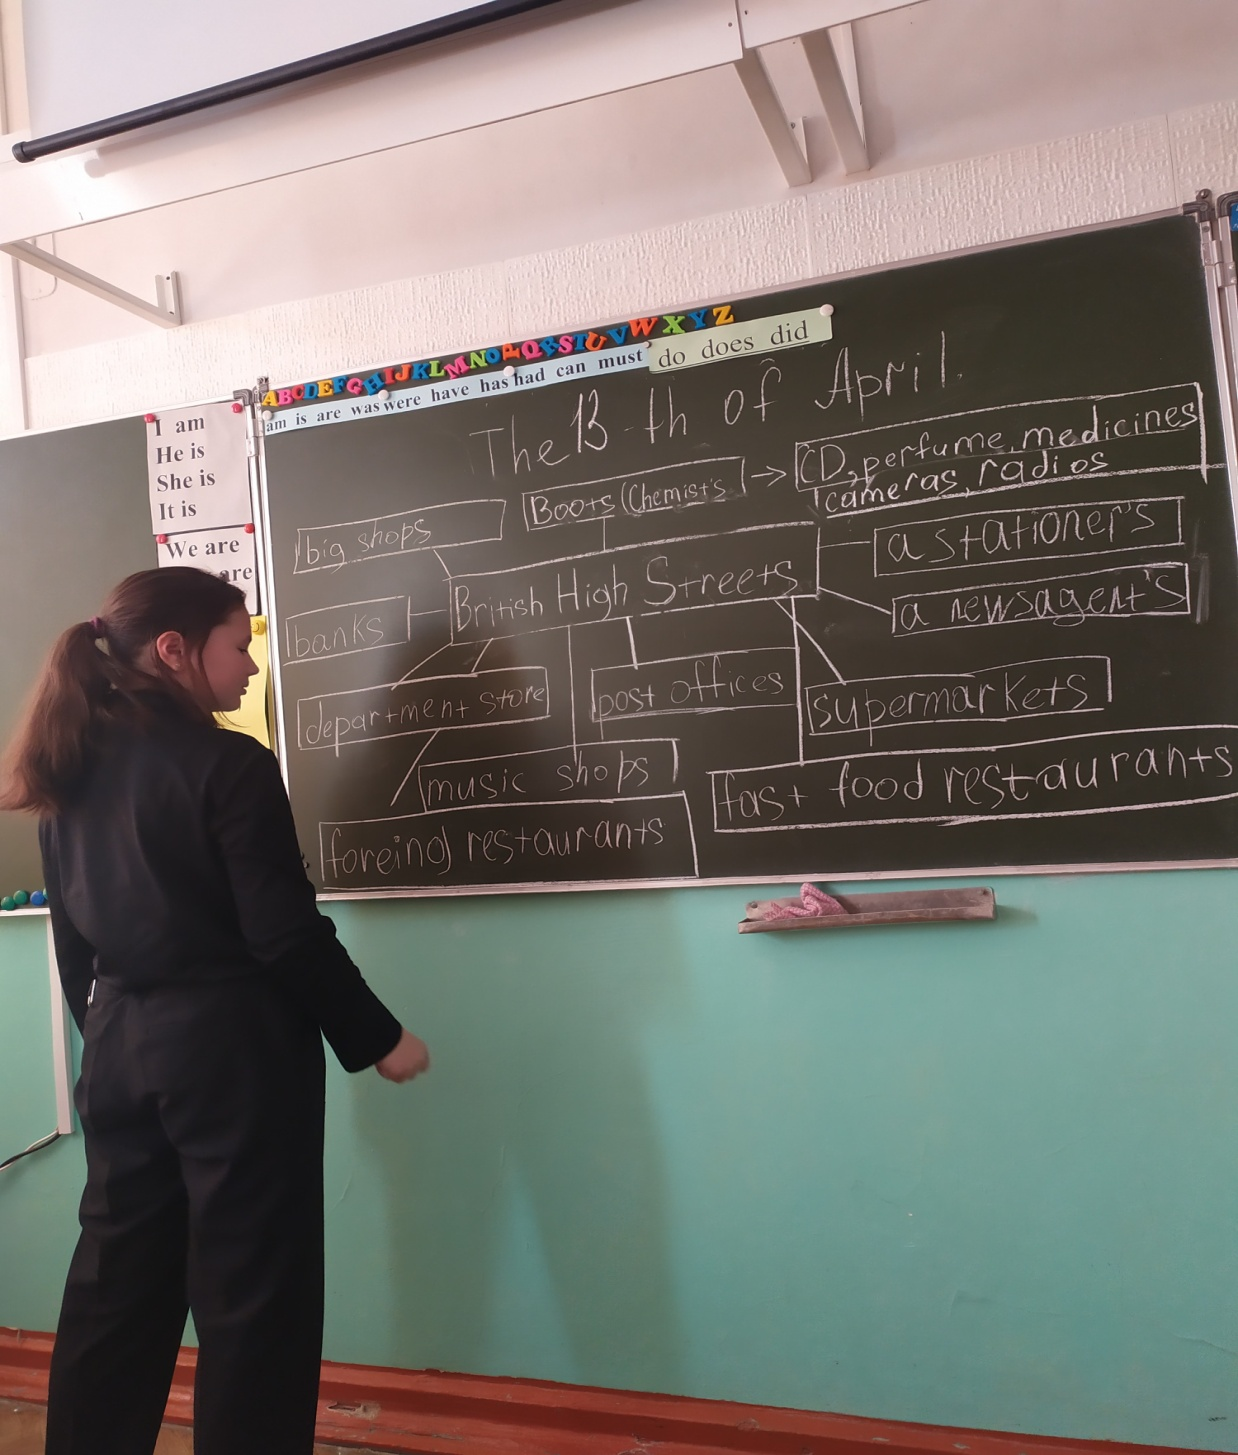 ABCDEFGHIJKLMNOPQRSTUVWXYZ
am is are was were have has had can must
do does did
I am
He is
She is
It is
We are
are
The 13-th of April.
Boots (Chemist's
CD, perfume, medicines
cameras, radios
big shops
British High Streets
a stationer's
banks
a newsagent's
department store
post offices
supermarkets
music shops
fast food restaurants
foreing restaurants